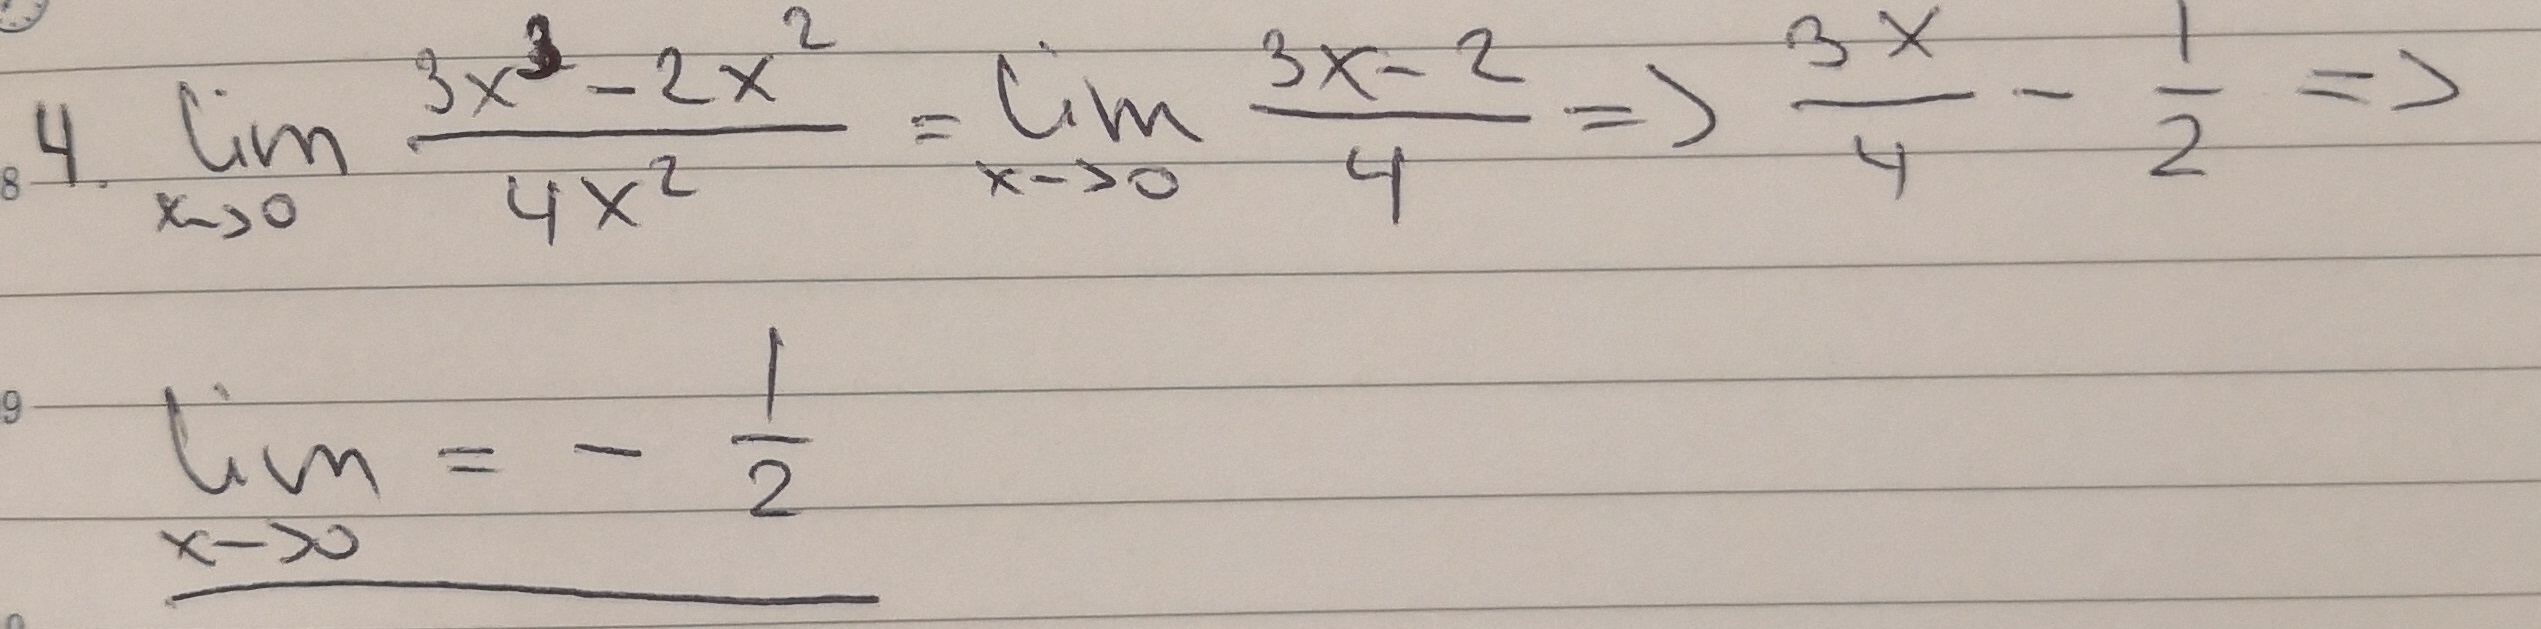 4. lim x->0 (3x³ - 2x²)/(4x²) = lim x->0 (3x - 2)/4 => 3x/4 - 1/2 =>
8
9
lim x->0 = - 1/2